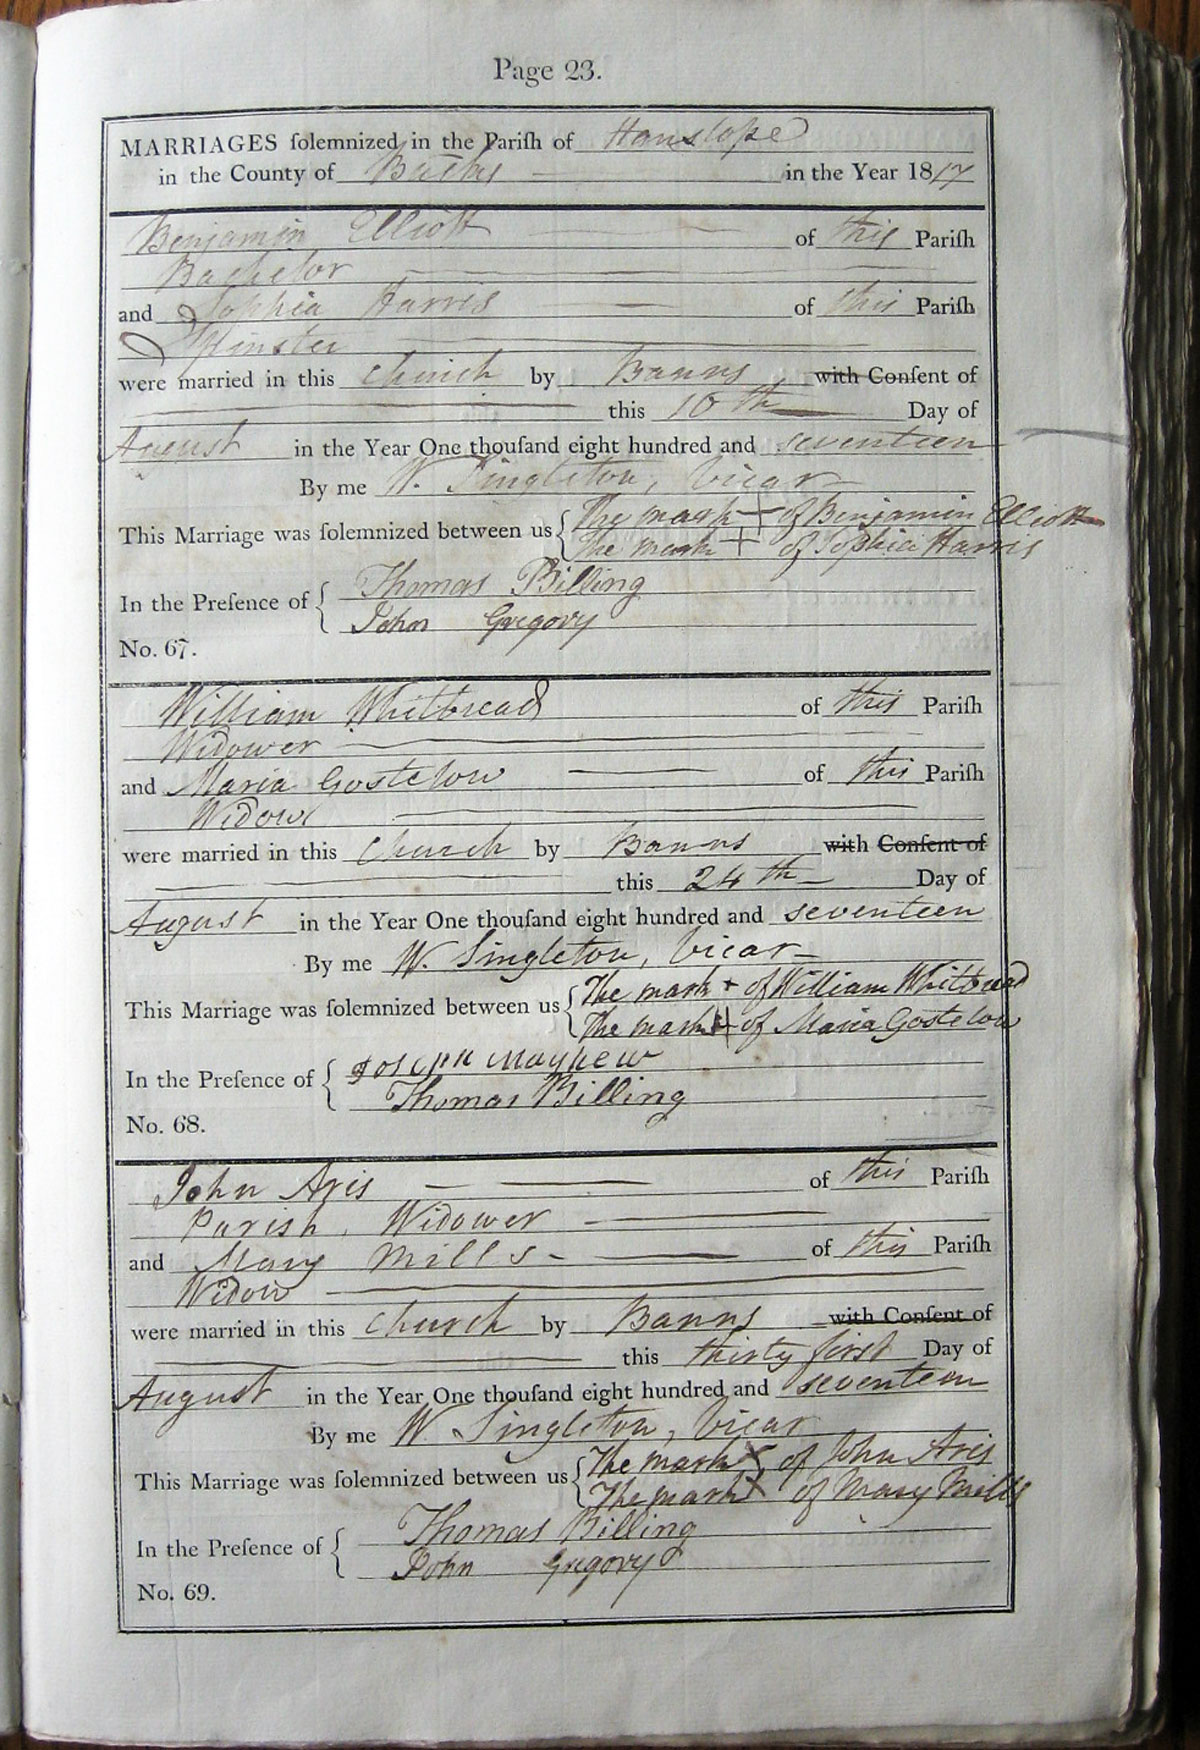 Page 23.
MARRIAGES ſolemnized in the Pariſh of Hanslope
in the County of Bucks in the Year 1817
Benjamin Elliott of this Pariſh
Bachelor
and Sophia Harris of this Pariſh
Spinster
were married in this Church by Banns with Conſent of
this 10th Day of
August in the Year One thouſand eight hundred and seventeen
By me W. Singleton, Vicar
This Marriage was ſolemnized between us { The mark + of Benjamin Elliott
The mark + of Sophia Harris
In the Preſence of { Thomas Billing
John Gregory
No. 67.
William Whitbread of this Pariſh
Widower
and Maria Gostelow of this Pariſh
Widow
were married in this Church by Banns with Conſent of
this 24th Day of
August in the Year One thouſand eight hundred and seventeen
By me W. Singleton, Vicar
This Marriage was ſolemnized between us { The mark + of William Whitbread
The mark + of Maria Gostelow
In the Preſence of { Joseph Mayhew
Thomas Billing
No. 68.
John Aris of this Pariſh
Parish, Widower
and Mary Mills of this Pariſh
Widow
were married in this Church by Banns with Conſent of
this thirty first Day of
August in the Year One thouſand eight hundred and seventeen
By me W. Singleton, Vicar
This Marriage was ſolemnized between us { The mark X of John Aris
The mark X of Mary Mills
In the Preſence of { Thomas Billing
John Gregory
No. 69.